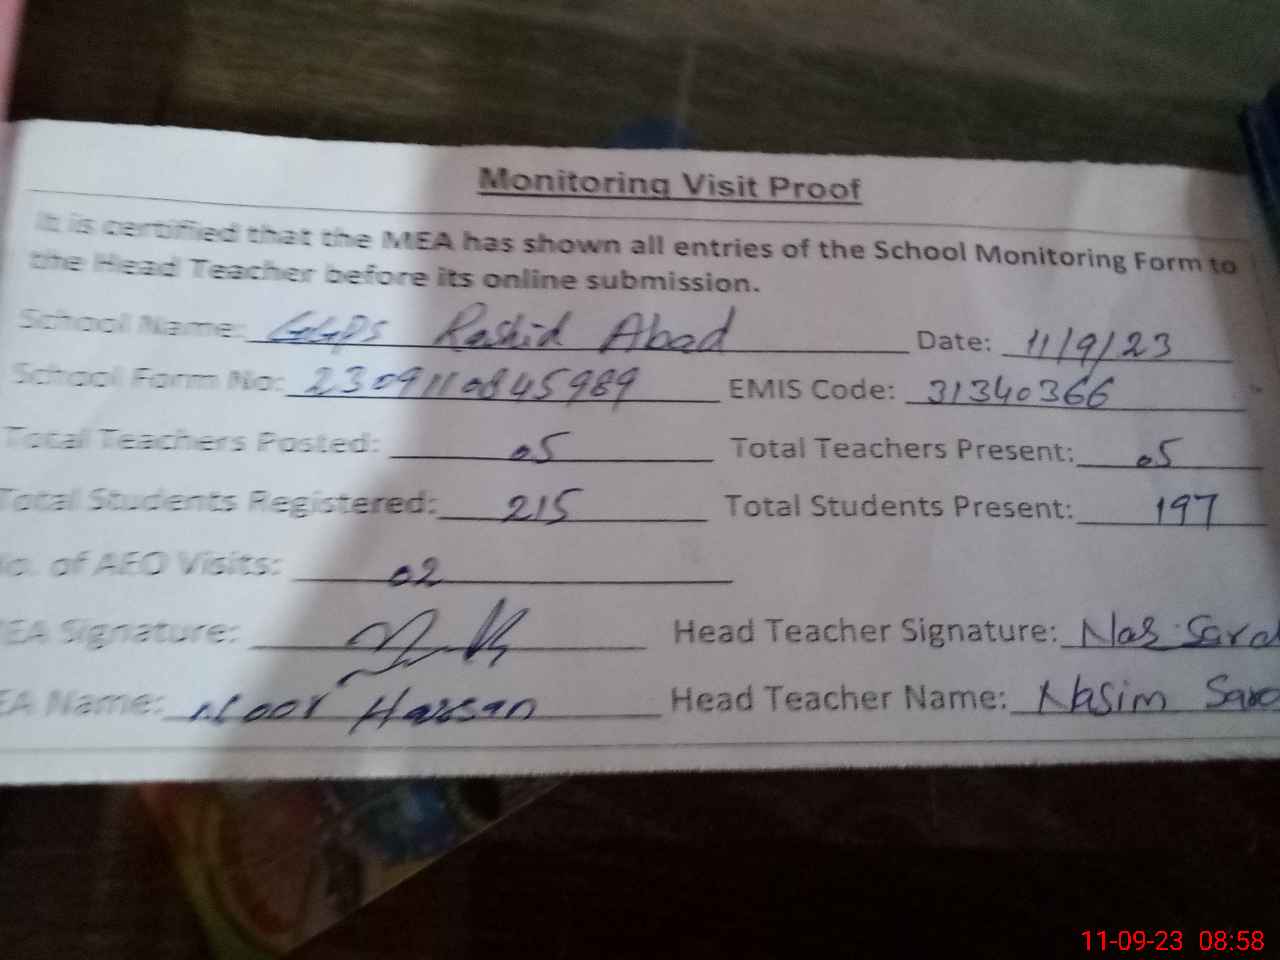 Monitoring Visit Proof
It is certified that the MEA has shown all entries of the School Monitoring Form to
the Head Teacher before its online submission.
School Name: GGPS Rashid Abad Date: 11/9/23
School Form No: 2309110845989 EMIS Code: 31340366
Total Teachers Posted: 05 Total Teachers Present: 05
Total Students Registered: 215 Total Students Present: 197
o. of AEO Visits: 02
EA Signature: Head Teacher Signature: Nas
EA Name: Noor Hassan Head Teacher Name: Nasim
11-09-23 08:58